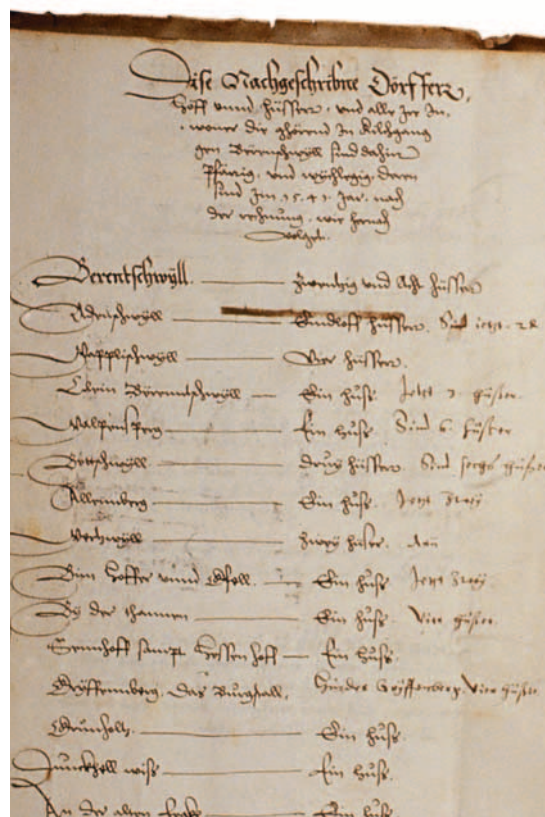 Dise Nachgeschribne Dörffer,
Höff unnd hüsser, und alle Jre Jn,
woner die ghörend Jn Kilchgang
gen Berentschwyll sind dahin
Pfärrig, und wychlegig, deren
sind Jm 15.41. Jar, nach
der rechnung, wie hernach
volget.
Berentschwyll. Zwentzig und Acht hüsser
Adenschwyll Eindloff hüsser. Sind jetzt. 22
Wapplischwyll Vier hüsser.
Ein huss. Jetzt 2 hüser.
Walpensperg Ein huss. Sind 6. hüser
Bettschwyll dryg hüsser. Sind sechs hüser
Allennberg Ein huss. Jetzt zwey
zwey hüser.
Bim hoffe unnd Ein huss. Jetzt zwey
By der thannen Ein huss. Vier hüser.
Sennhoff sampt Hessen hoff Ein huss.
Gryffennberg. Das Burgstall. Hinder Gryffenberg. Vier hüser.
Grünholtz. Ein huss.
wiss Ein huss.
An der alten Ein huss.